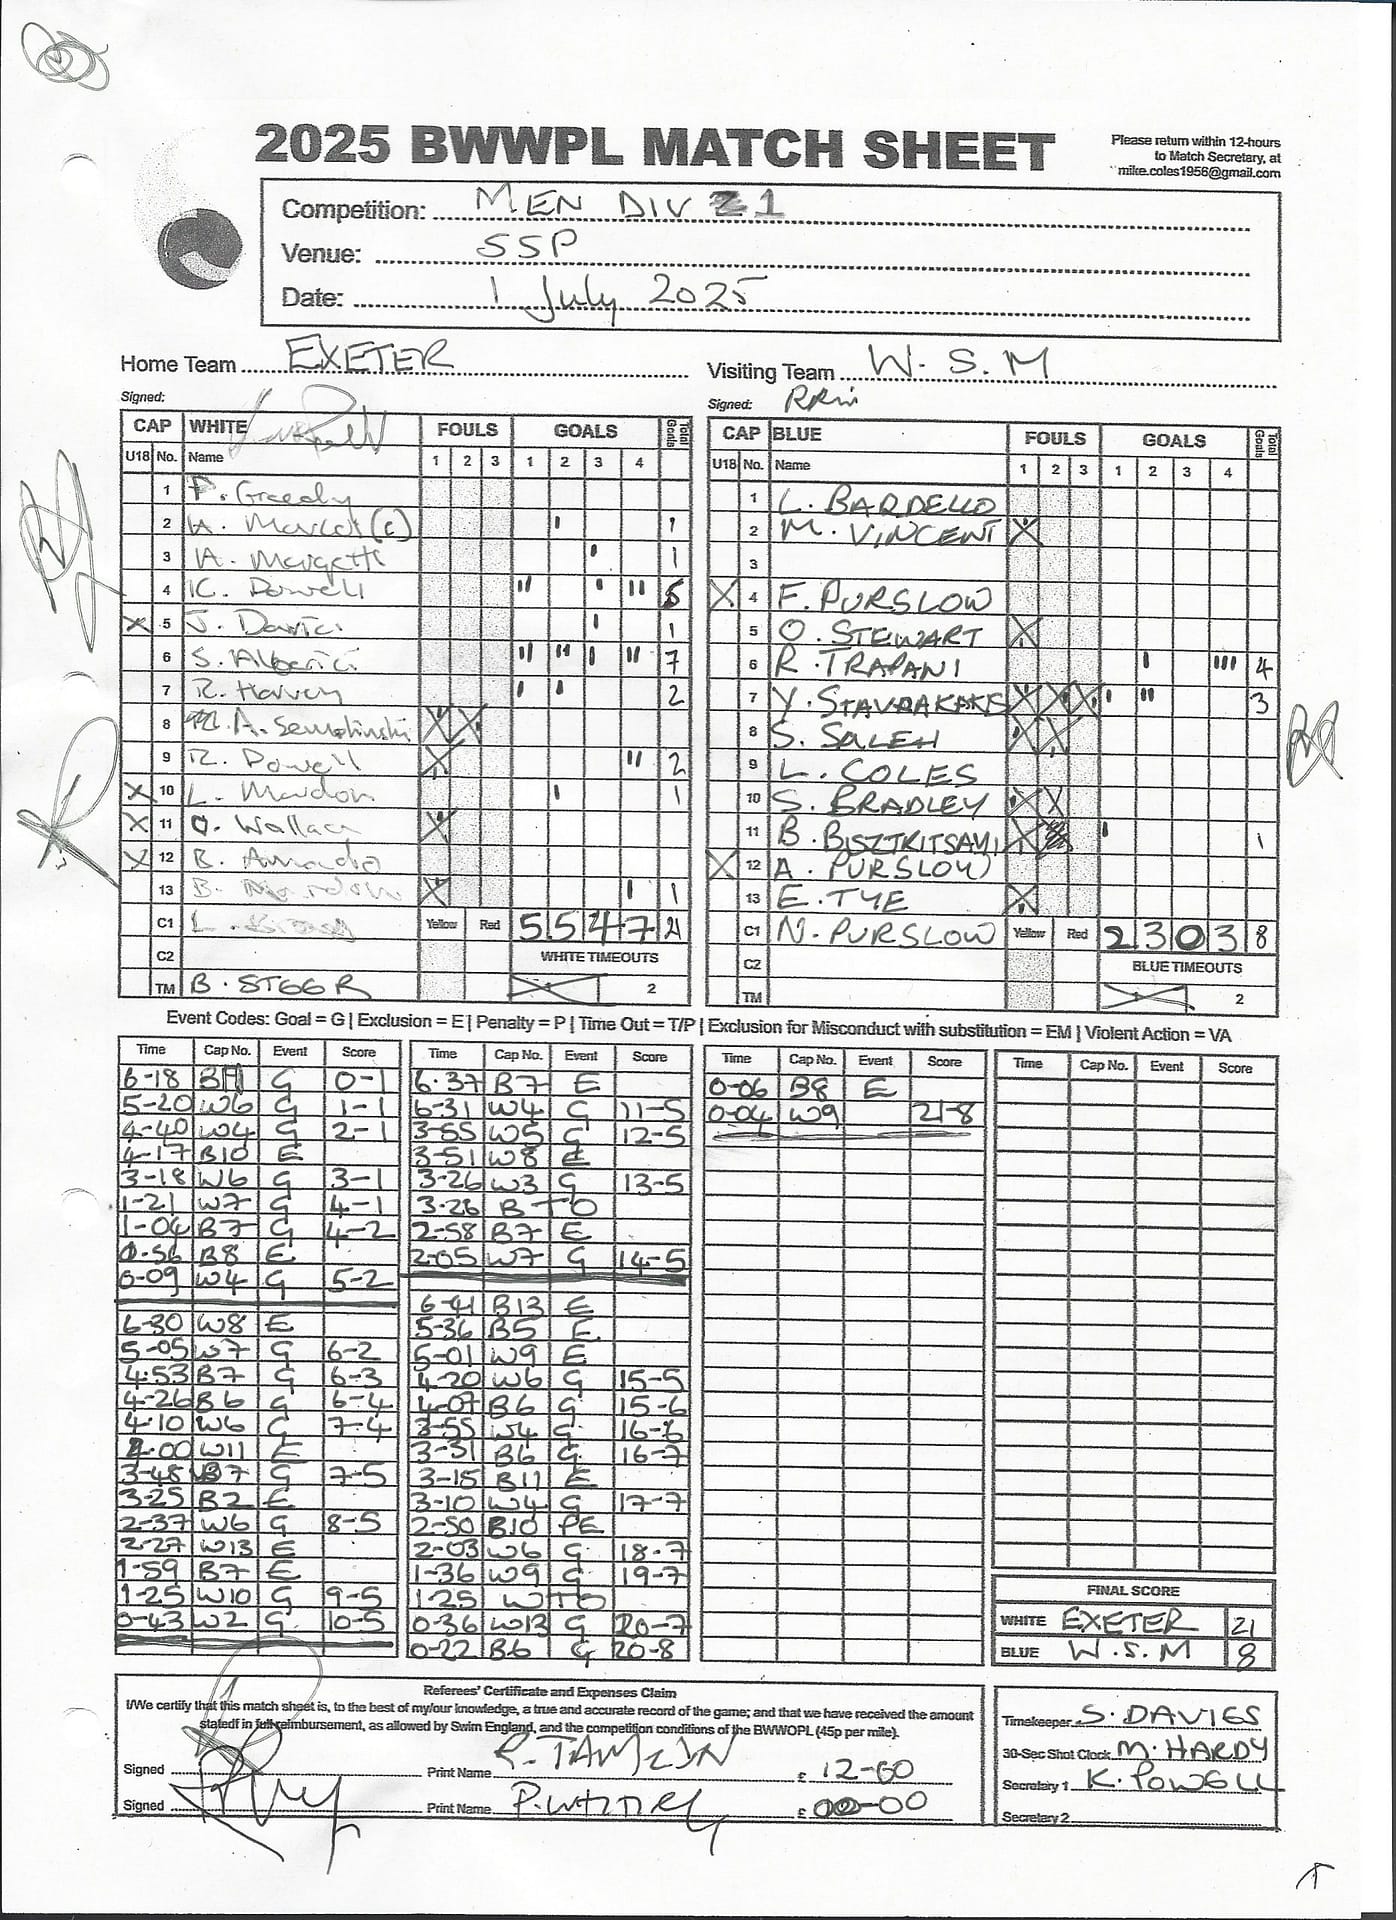 2025 BWWPL MATCH SHEET
Please return within 12-hours
to Match Secretary, at
mike.coles1956@gmail.com
Competition: MEN DIV 1
Venue: SSP
Date: 1 July 2025
Home Team EXETER
Visiting Team W.S.M
Signed:
Signed:
CAP WHITE FOULS GOALS Total Goals
U18 No. Name 1 2 3 1 2 3 4
1 P. Greedy
2 A. (C) ı 1
3 A. ı 1
4 K. Powell ıı ı ıı 5
X 5 J. ı 1
6 S. Alberici ıı ıı ı ıı 7
7 R. Harvey ı ı 2
8 A. X X
9 R. Powell X ıı 2
X 10 L. ı 1
X 11 O. Wallace X
X 12 B.
13 B. X ı 1
C1 L. Yellow Red 5 5 4 7 21
C2 WHITE TIMEOUTS
TM B. STGGR 1 2
CAP BLUE FOULS GOALS Total Goals
U18 No. Name 1 2 3 1 2 3 4
1 L. BARDELLO
2 M. VINCENT X
3
X 4 F. PURSLOW
5 O. STEWART X
6 R. TRAPANI ı ııı 4
7 Y. STAVRAKAKIS X X X ı ıı 3
8 S. SALEH X X
9 L. COLES
10 S. BRADLEY X X
11 B. X ı 1
X 12 A. PURSLOW
13 E. TYE X
C1 N. PURSLOW Yellow Red 2 3 0 3 8
C2 BLUE TIMEOUTS
TM 1 2
Event Codes: Goal = G | Exclusion = E | Penalty = P | Time Out = T/P | Exclusion for Misconduct with substitution = EM | Violent Action = VA
Time Cap No. Event Score
6-18 B11 G 0-1
5-20 W6 G 1-1
4-40 W4 G 2-1
4-17 B10 E
3-18 W6 G 3-1
1-21 W7 G 4-1
1-04 B7 G 4-2
0-56 B8 E
0-09 W4 G 5-2
6-30 W8 E
5-05 W7 G 6-2
4-53 B7 G 6-3
4-26 B6 G 6-4
4-10 W6 G 7-4
4-00 W11 E
3-48 B7 G 7-5
3-25 B2 E
2-37 W6 G 8-5
2-27 W13 E
1-59 B7 E
1-25 W10 G 9-5
0-43 W2 G 10-5
Time Cap No. Event Score
6-37 B7 E
6-31 W4 G 11-5
3-55 W5 G 12-5
3-51 W8 E
3-26 W3 G 13-5
3-26 B TO
2-58 B7 E
2-05 W7 G 14-5
6-41 B13 E
5-36 B5 E
5-01 W9 E
4-20 W6 G 15-5
4-07 B6 G 15-6
3-55 W4 G 16-6
3-31 B6 G 16-7
3-15 B11 E
3-10 W4 G 17-7
2-50 B10 PE
2-03 W6 G 18-7
1-36 W9 G 19-7
1-25 W TO
0-36 W13 G 20-7
0-22 B6 G 20-8
Time Cap No. Event Score
0-06 B8 E
0-04 W9 21-8
Time Cap No. Event Score
FINAL SCORE
WHITE EXETER 21
BLUE W.S.M 8
Referees' Certificate and Expenses Claim
I/We certify that this match sheet is, to the best of my/our knowledge, a true and accurate record of the game; and that we have received the amount
statedf in full reimbursement, as allowed by Swim England, and the competition conditions of the BWWOPL (45p per mile).
Signed Print Name R. TAMLIN £ 12-60
Signed Print Name £ 00-00
Timekeeper S. DAVIES
30-Sec Shot Clock M. HARDY
Secretary 1 K. POWELL
Secretary 2